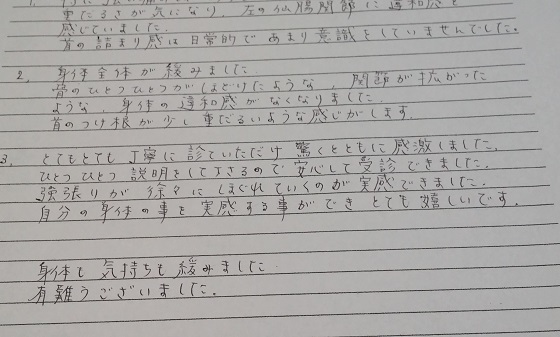 重だるさが気になり、左の仙腸関節に違和感を
感じていました。
首の詰まり感は日常的であまり意識をしていませんでした。
2. 身体全体が緩みました。
骨のひとつひとつがほどけたような、関節が拡がった
ような、身体の違和感がなくなりました。
首のつけ根が少し重だるいような感じがします。
3. とてもとても丁寧に診ていただけ驚くとともに感激しました。
ひとつひとつ説明をして下さるので安心して受診できました。
強張りが徐々にほぐれていくのが実感できました。
自分の身体の事を実感する事ができとても嬉しいです。
身体も気持ちも緩みました
有難うございました。